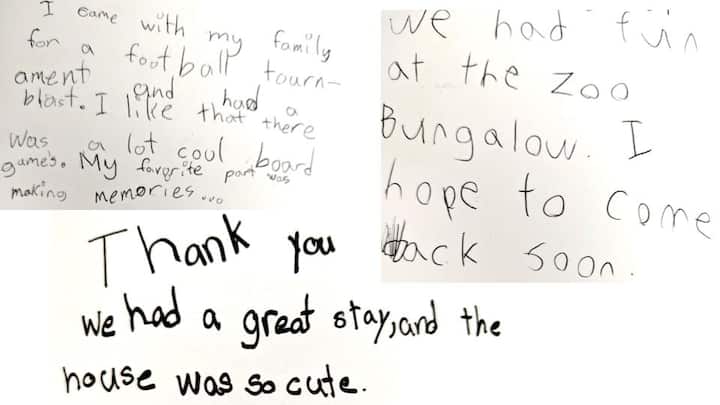 I came with my family
for a football tourn-
ament and had a
blast. I like that there
was a lot coul board
games. My favorite part was
making memories...
we had fun
at the zoo
Bungalow. I
hope to come
back soon.
Thank you
we had a great stay, and the
house was so cute.